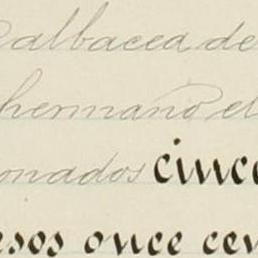 albacea de
hermano el
onados cinco
esos once cen